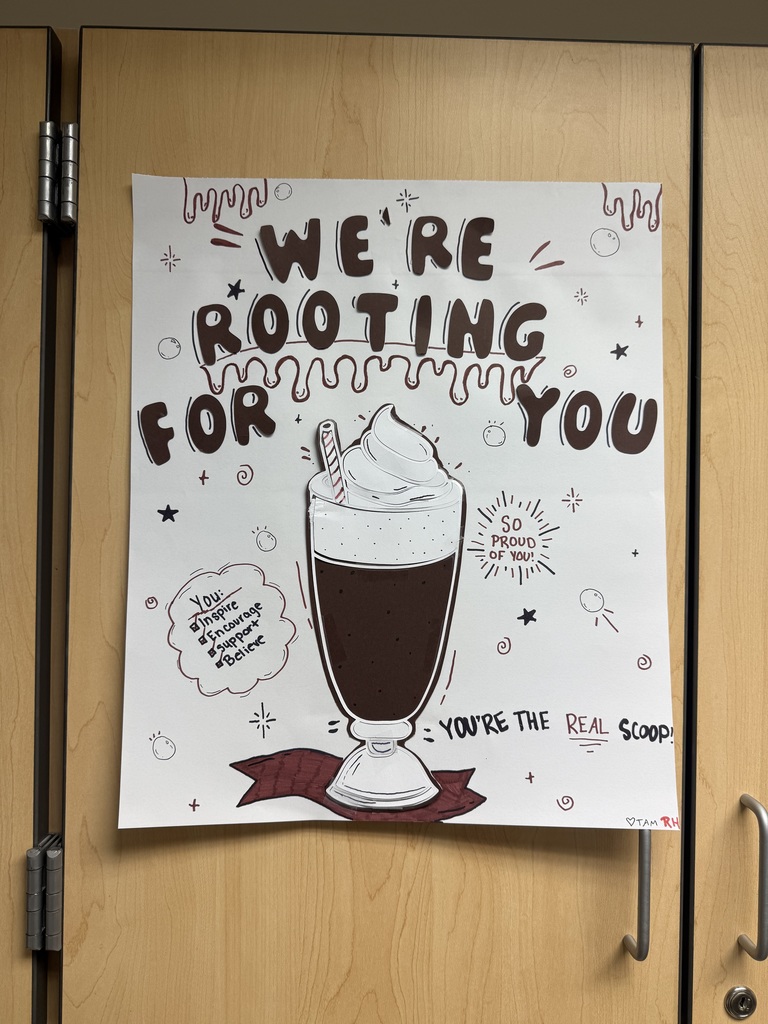 WE'RE
ROOTING
FOR YOU
SO
PROUD
OF YOU!
You:
Inspire
Encourage
Support
Believe
YOU'RE THE REAL SCOOP!
♡TAM RH